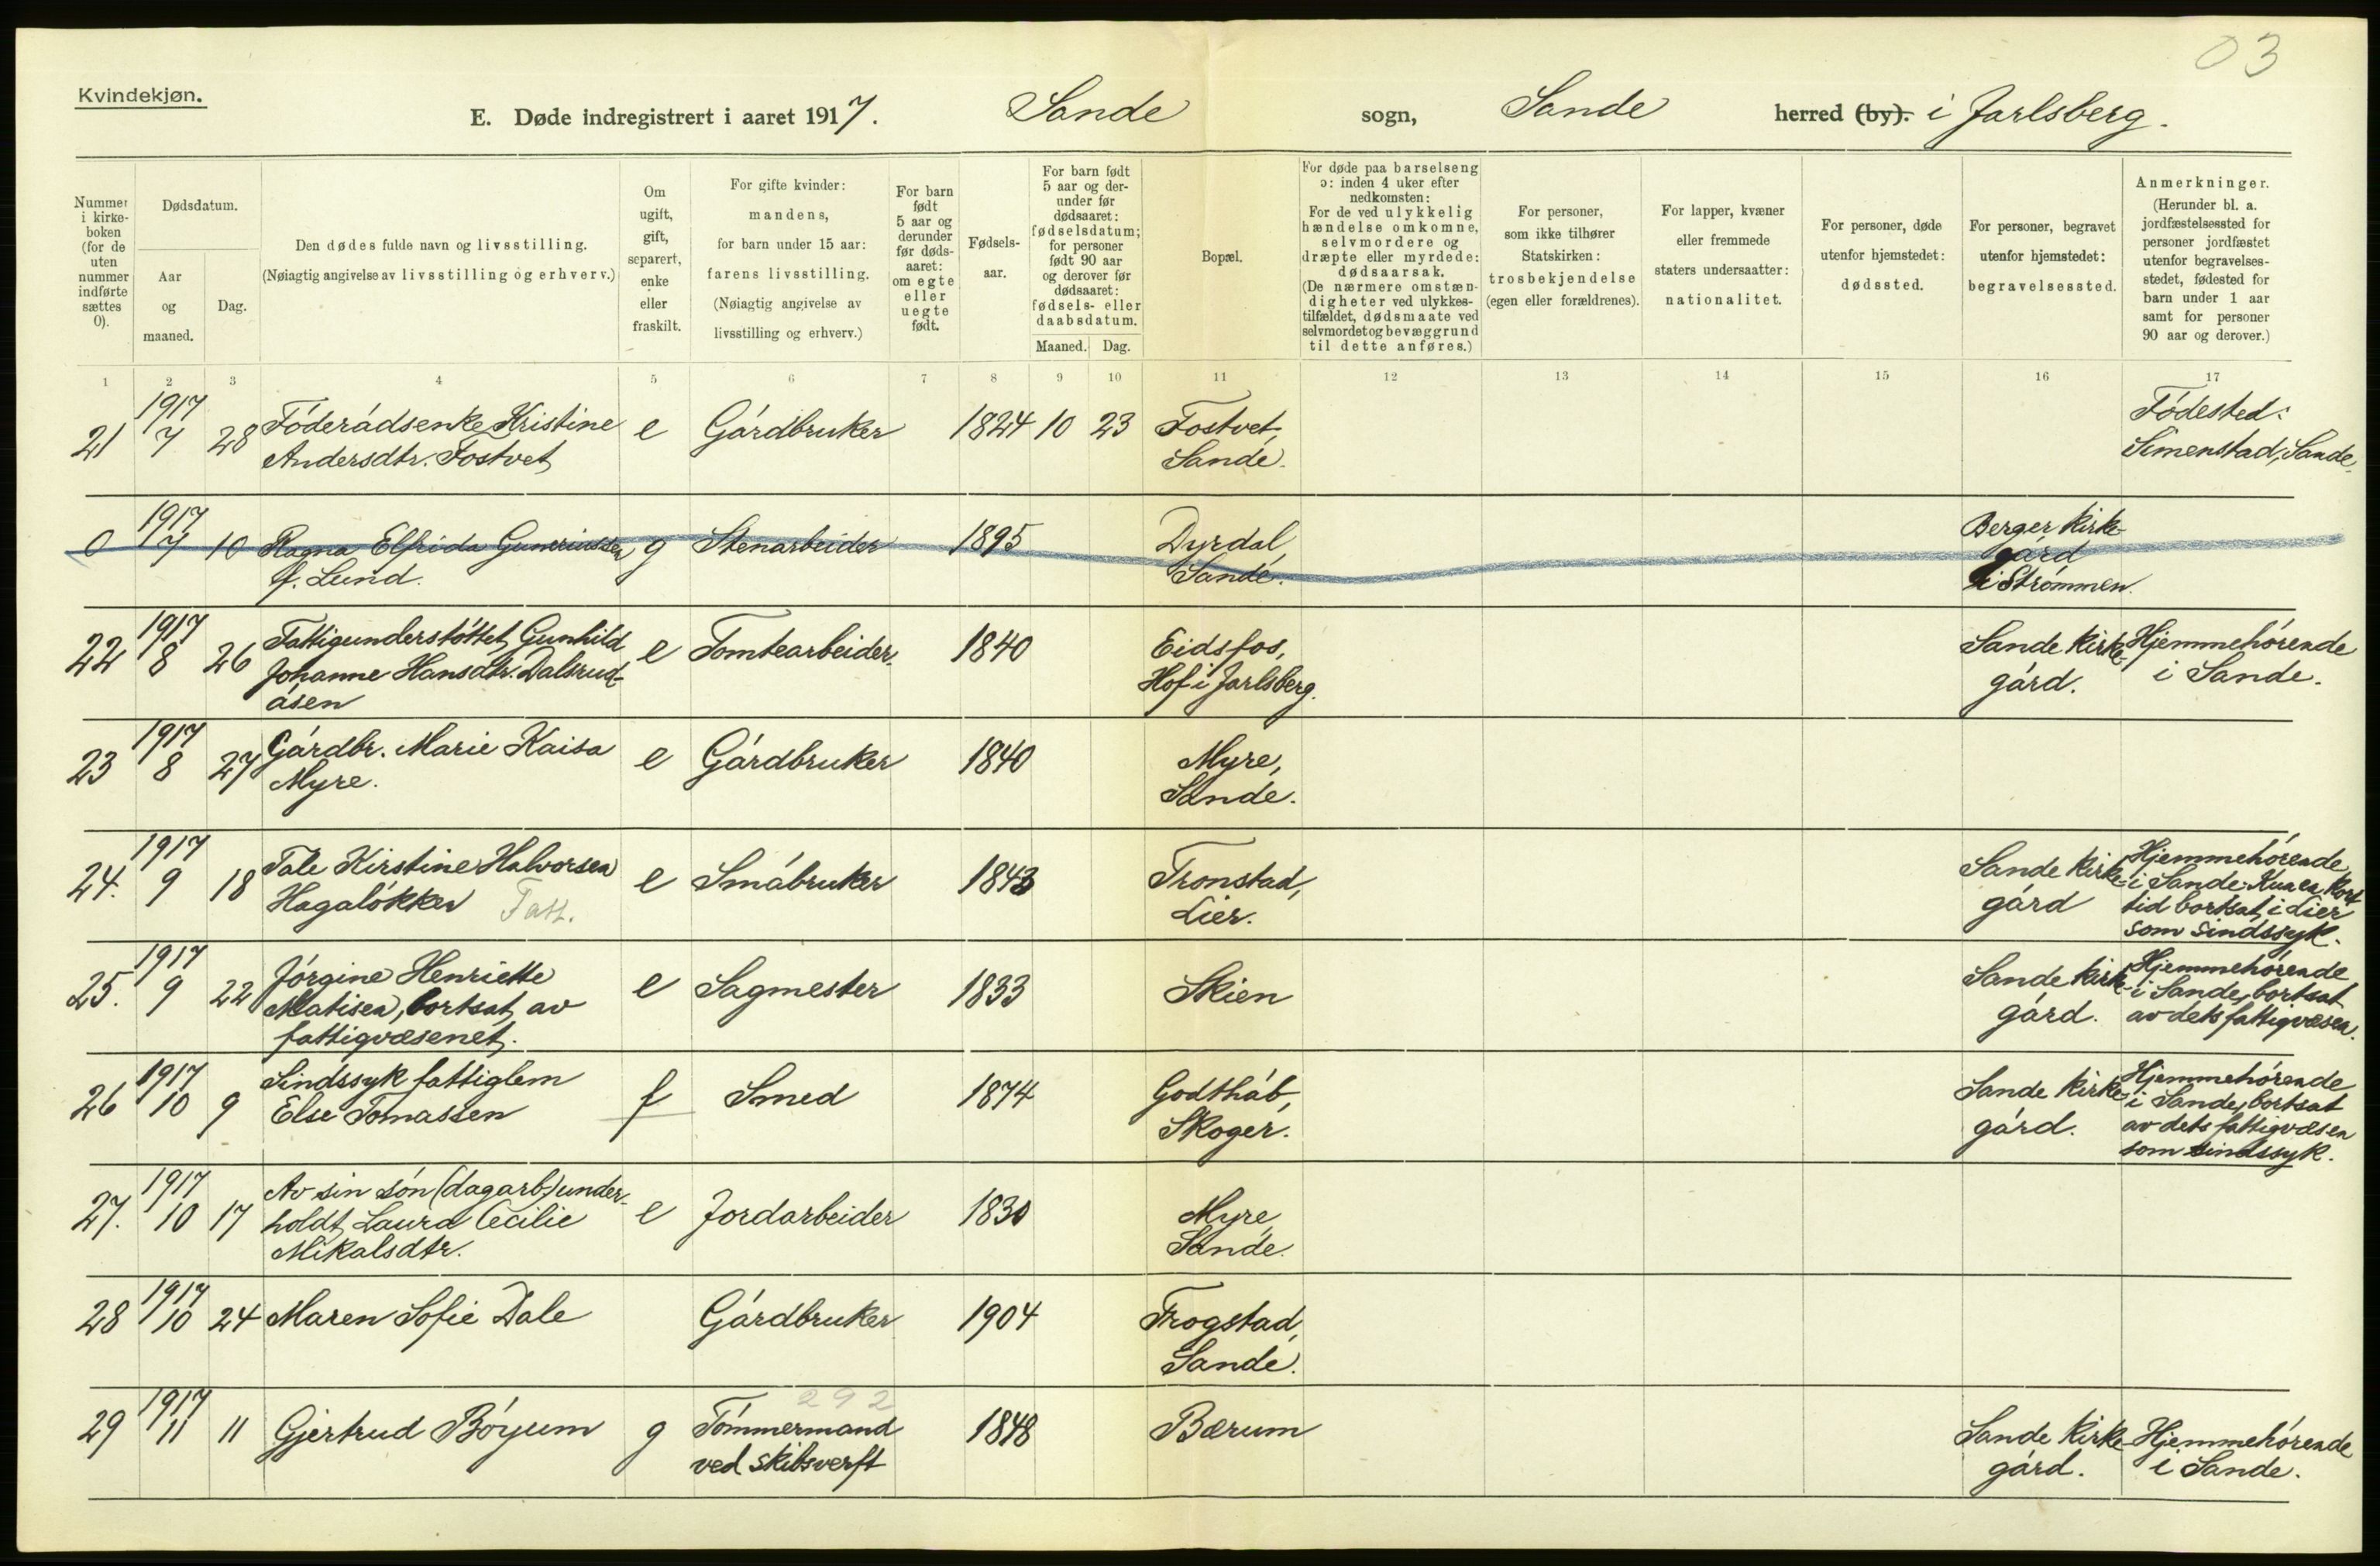 03
Kvindekjøn.
E. Døde indregistrert i aaret 1917. Sande sogn, Sande herred (by). i Jarlsberg.
Nummer i kirkeboken (for de uten nummer indførte sættes 0).
Dødsdatum.
Aar og maaned.
Dag.
Den dødes fulde navn og livsstilling.
(Nøiagtig angivelse av livsstilling og erhverv.)
Om ugift, gift, separert, enke eller fraskilt.
For gifte kvinder: mandens, for barn under 15 aar: farens livsstilling. (Nøiagtig angivelse av livsstilling og erhverv.)
For barn født 5 aar og derunder før dødsaaret: om egte eller uegte født.
Fødselsaar.
For barn født 5 aar og derunder før dødsaaret: fødselsdatum; for personer født 90 aar og derover før dødsaaret: fødsels- eller daabsdatum.
Maaned. Dag.
Bopæl.
For døde paa barselseng ɔ: inden 4 uker efter nedkomsten: For de ved ulykkelig hændelse omkomne, selvmordere og dræpte eller myrdede: dødsaarsak. (De nærmere omstændigheter ved ulykkestilfældet, dødsmaate ved selvmordet og bevæggrund til dette anføres.)
For personer, som ikke tilhører Statskirken: trosbekjendelse (egen eller forældrenes).
For lapper, kvæner eller fremmede staters undersaatter: nationalitet.
For personer, døde utenfor hjemstedet: dødssted.
For personer, begravet utenfor hjemstedet: begravelsessted.
Anmerkninger. (Herunder bl. a. jordfæstelsessted for personer jordfæstet utenfor begravelsesstedet, fødested for barn under 1 aar samt for personer 90 aar og derover.)
1 2 3 4 5 6 7 8 9 10 11 12 13 14 15 16 17
21 1917 7 28 Föderådsenke Kristine e Gårdbruker 1824 10 23 Fostvet, Födested:
Andersdtr. Fostvet Sande. Simenstad, Sande.
0 1917 7 10 Ragna Elfrida Gunriussen g Stenarbeider 1895 Dyrdal, Berger kirke-
f. Lund. Sande. gård
i Strømmen.
22 1917 8 26 Fattigunderstöttet Gunhild e Tomtearbeider. 1840 Eidsfos, Sande kirke- Hjemmehörende
Johanne Hansdtr. Dalsrud- Hof i Jarlsberg. gård. i Sande.
åsen
23 1917 8 27 Gårdbr. Marie Kaisa e Gårdbruker 1840 Myre,
Myre. Sande.
24. 1917 9 18 Tale Kirstine Halvorsen e Småbruker 1843 Tronstad, Sande kirke- Hjemmehörende
Hagalökken Fatt. Lier. gård i Sande. Kun en kort
tid bortsat i Lier
som sindssyk.
25. 1917 9 22 Jörgine Henriette e Sagmester 1833 Skien Sande kirke- Hjemmehörende
Matisen, bortsat av gård. i Sande, bortsat
fattigvæsenet. av dets fattigvæsen.
26 1917 10 9 Sindssyk fattiglem f Smed 1874 Godthåb, Sande kirke- Hjemmehörende
Else Tomassen Skoger. gård. i Sande, bortsat
av dets fattigvæsen
som sindssyk.
27. 1917 10 17 Av sin sön (dagarb.) under- e Jordarbeider 1830 Myre,
holdt Laura Cecilie Sande.
Mikalsdtr.
28 1917 10 24 Maren Sofie Dale Gårdbruker 1904 Frogstad,
Sande.
292
29 1917 11 11 Gjertrud Böyum g Tömmermand 1848 Bærum Sande kirke- Hjemmehörende
ved skibsverft gård. i Sande.